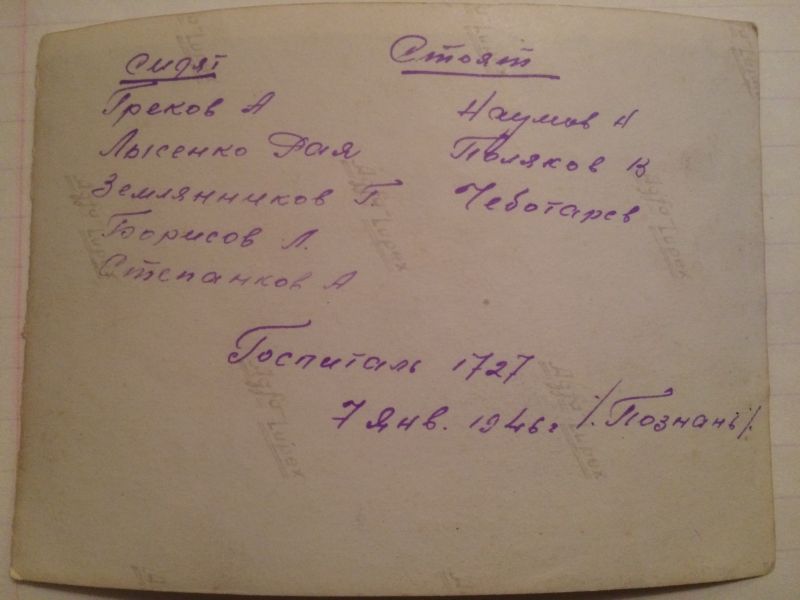 Сидят
Греков А
Лысенко Рая
Землянников Г
Борисов Л.
Степанков А
Стоят
Наумов Н
Поляков В
Чеботарев
Госпиталь 1727
7 Янв. 1946г /.Познань/.
Agfa Lupex
Agfa Lupex
Agfa Lupex
Agfa Lupex
Agfa Lupex